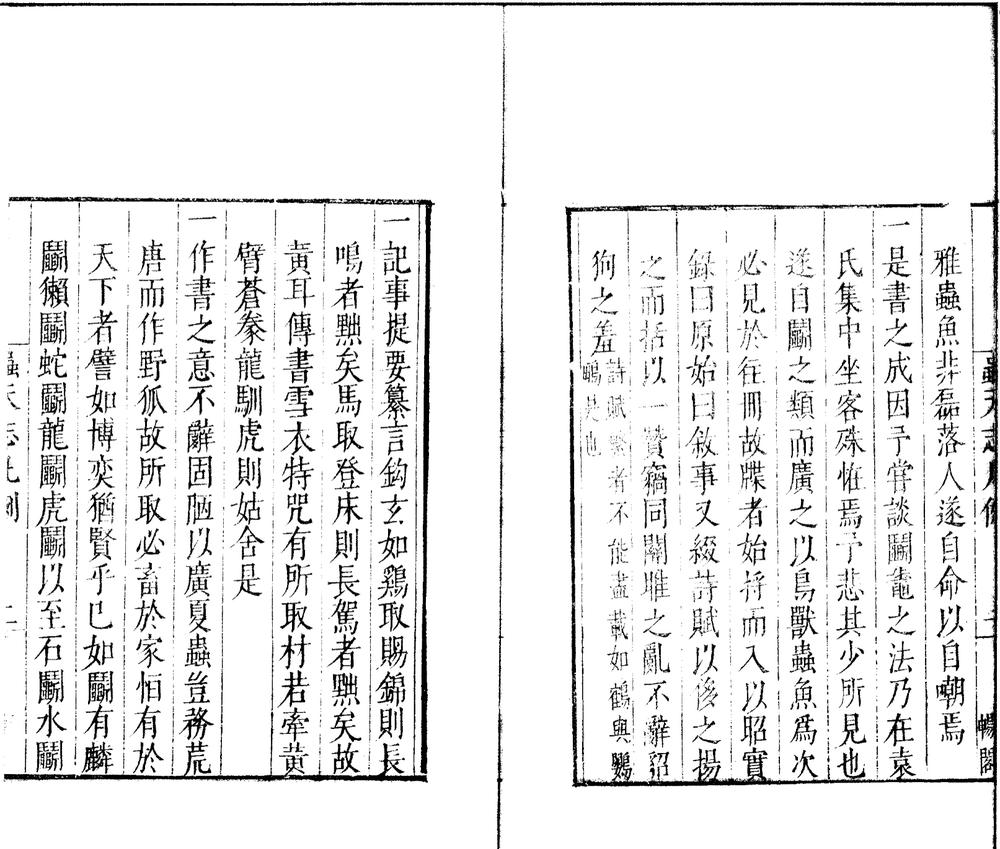 雅蟲魚非磊落人遂自命以自嘲焉
一是書之成因予嘗談鬭鼃之法乃在袁
氏集中坐客殊恠焉予悲其少所見也
遂自鬭之類而廣之以鳥獸蟲魚爲次
必見於往冊故牒者始捋而入以昭實
錄曰原始曰敘事又綴詩賦以後之揚
之而括以一贊竊同關雎之亂不辭貂
狗之羞詩賦繁者不能盡載如鶴與鸚
鵡是也
一記事提要纂言鈎玄如鷄取賜錦則長
鳴者黜矣馬取登床則長駕者黜矣故
黄耳傳書雪衣特咒有所取材若牽黄
臂蒼豢龍馴虎則姑舍是
一作書之意不辭固陋以廣夏蟲豈務荒
唐而作野狐故所取必畜於家恒有於
天下者譬如博奕猶賢乎已如鬭有麟
鬭獺鬭蛇鬭龍鬭虎鬭以至石鬭水鬭
蟲天志凡例 二